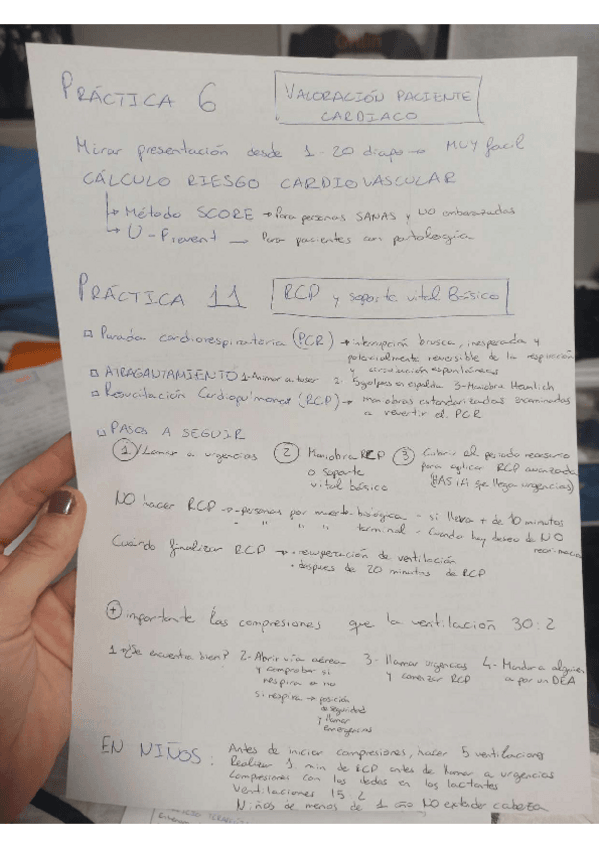 PRÁCTICA 6
VALORACIÓN PACIENTE
CARDIACO
Mirar presentación desde 1-20 diapo → MUY facil
CÁLCULO RIESGO CARDIOVASCULAR
↳ Método SCORE → Para personas SANAS y NO embarazadas
↳ U-Prevent → Para pacientes con patología
PRÁCTICA 11
RCP y soporte vital Básico
Parada cardiorespiratoria (PCR) → interrupción brusca, inesperada y
potencialmente reversible de la respiración
y circulación espontáneas
ATRAGANTAMIENTO 1-Animar a toser 2- 5 golpes en espalda 3-Maniobra Heimlich
Resucitación Cardiopulmonar (RCP) → maniobras estandarizadas encaminadas
a revertir el PCR
PASOS A SEGUIR
1 Llamar a urgencias
2 Maniobra RCP
o soporte
vital básico
3 Cubrir el periodo necesario
para aplicar RCP avanzada
(HASTA q se llega urgencias)
NO hacer RCP → -personas por muerte biológica - si lleva + de 10 minutos
" " " terminal - Cuando hay deseo de NO
Cuándo finalizar RCP → · recuperación de ventilación
· despues de 20 minutos de RCP
+ importante las compresiones que la ventilación 30:2
1-¿Se encuentra bien?
2-Abrir vía aérea
y comprobar si
respira o no
si respira → posición
de seguridad
y llamar
emergencias
3- llamar urgencias
y comenzar RCP
4- Mandar a alguien
a por un DEA
EN NIÑOS:
Antes de iniciar compresiones, hacer 5 ventilaciones
Realizar 1 min de RCP antes de llamar a urgencias
Compresiones con los dedos en los lactantes
Ventilaciones 15:2
Niños de menos de 1 año NO extender cabeza